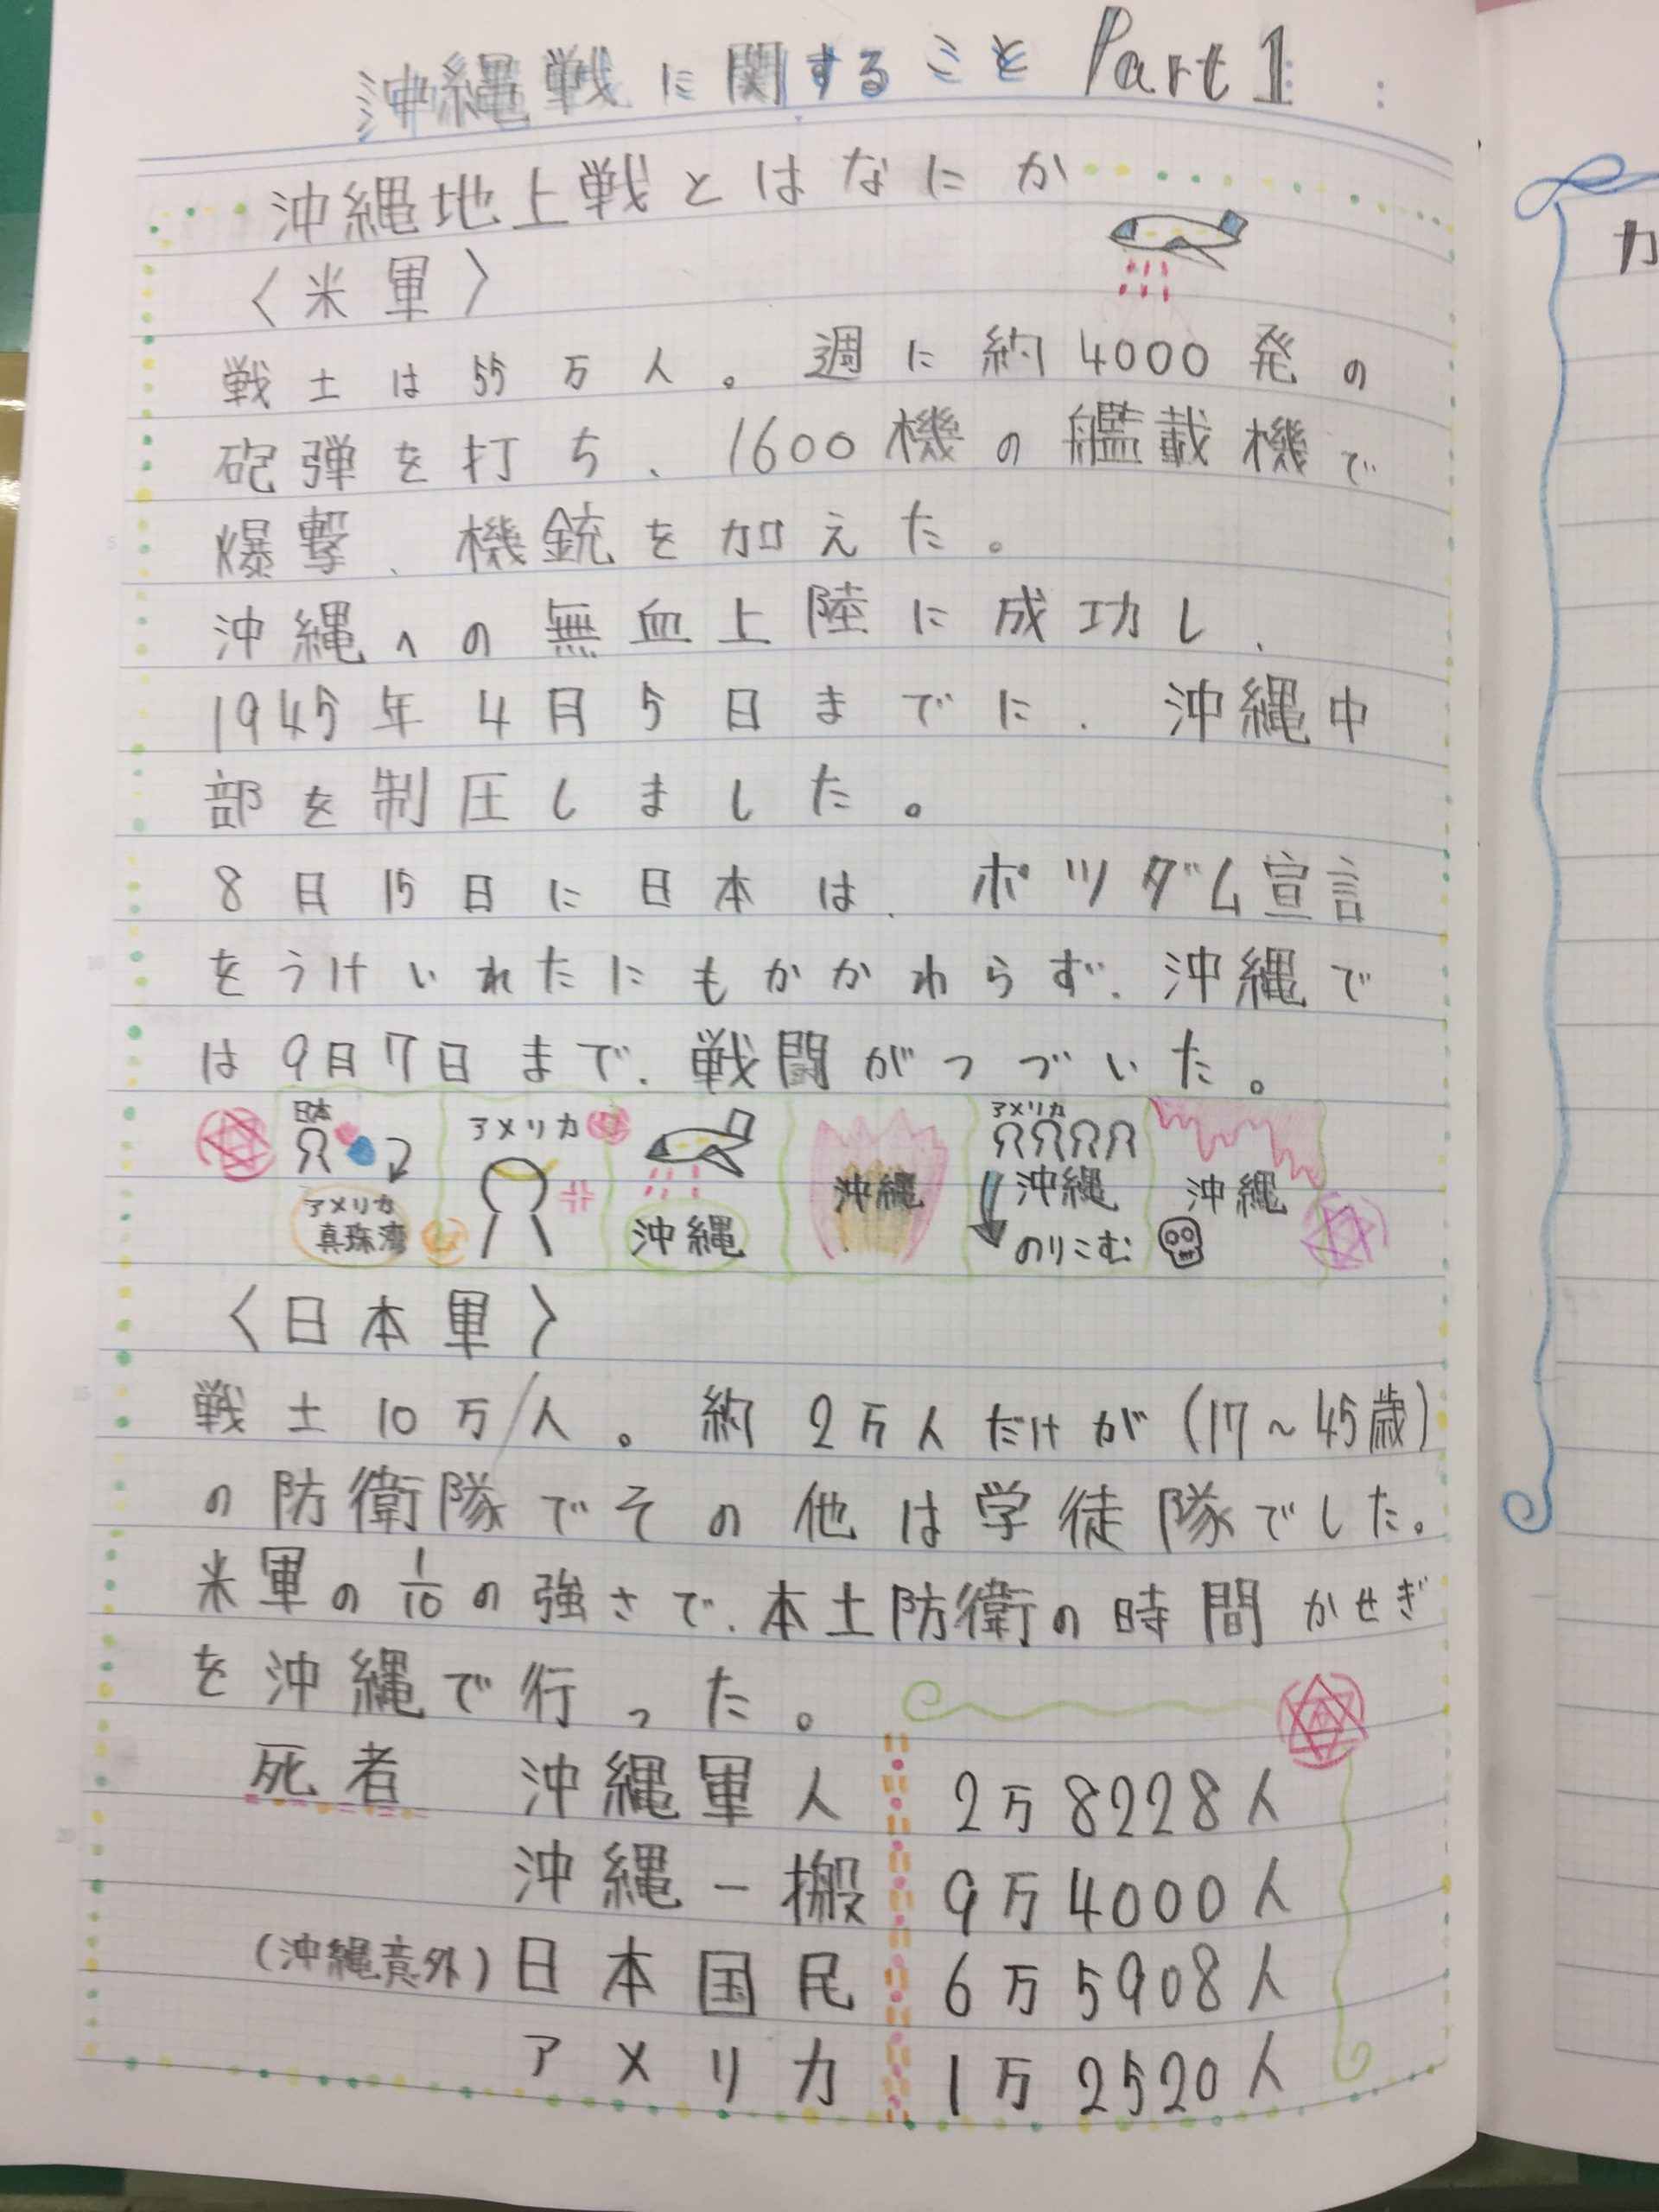 沖縄戦に関すること Part 1
沖縄地上戦とはなにか
〈米軍〉
戦士は55万人。週に約4000発の
砲弾を打ち、1600機の艦載機で
爆撃、機銃を加えた。
沖縄への無血上陸に成功し、
1945年4月5日までに、沖縄中
部を制圧しました。
8日15日に日本は、ポツダム宣言
をうけいれたにもかかわらず、沖縄で
は9月7日まで、戦闘がつづいた。
日本
アメリカ
真珠湾
アメリカ
沖縄
沖縄
アメリカ
沖縄
のりこむ
沖縄
〈日本軍〉
戦士10万人。約2万人だけが(17~45歳)
の防衛隊でその他は学徒隊でした。
米軍の1/10の強さで、本土防衛の時間かせぎ
を沖縄で行った。
死者 沖縄軍人 2万8228人
沖縄一搬 9万4000人
(沖縄意外)日本国民 6万5908人
アメリカ 1万2520人
カ